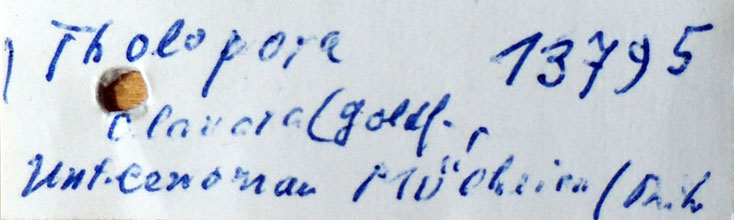 Tholopora 13795
clavata (Goldf.,
Unt. Cenoman Mülheim (Ruhr